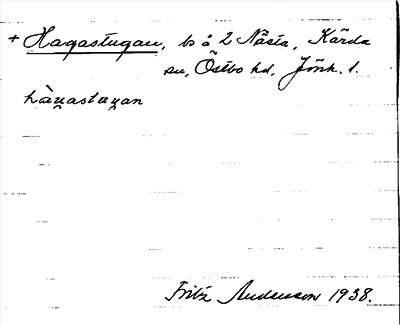 + Hagastugan, bs å 2 Nästa, Kärda
sn, Östbo hd, Jönk. l.
hàgastugan
Fritz Andersson 1938.